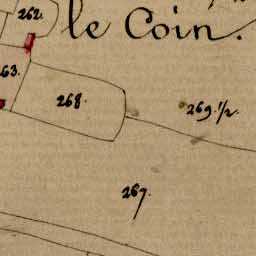 262.
le Coin.
263.
268.
269 1/2.
267.